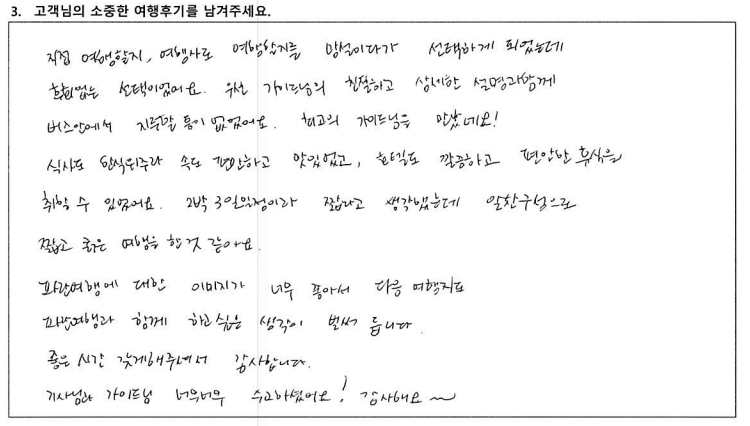 3. 고객님의 소중한 여행후기를 남겨주세요.
직접 여행할지, 여행사로 여행할지를 망설이다가 선택하게 되었는데
후회없는 선택이었어요. 우선 가이드님의 친절하고 상세한 설명과함께
버스안에서 지루할 틈이 없었어요. 최고의 가이드님을 만났네요!
식사도 한식위주라 속도 편안하고 맛있었고, 호텔도 깔끔하고 편안한 휴식을
취할 수 있었어요. 2박 3일일정이라 짧다고 생각했는데 알찬구성으로
짧고 굵은 여행을 한것 같아요.
파란여행에 대한 이미지가 너무 좋아서 다음 여행지도
파란여행과 함께 하고싶은 생각이 벌써 듭니다.
좋은 시간 갖게해주셔서 감사합니다.
기사님과 가이드님 너무너무 수고하셨어요! 감사해요~